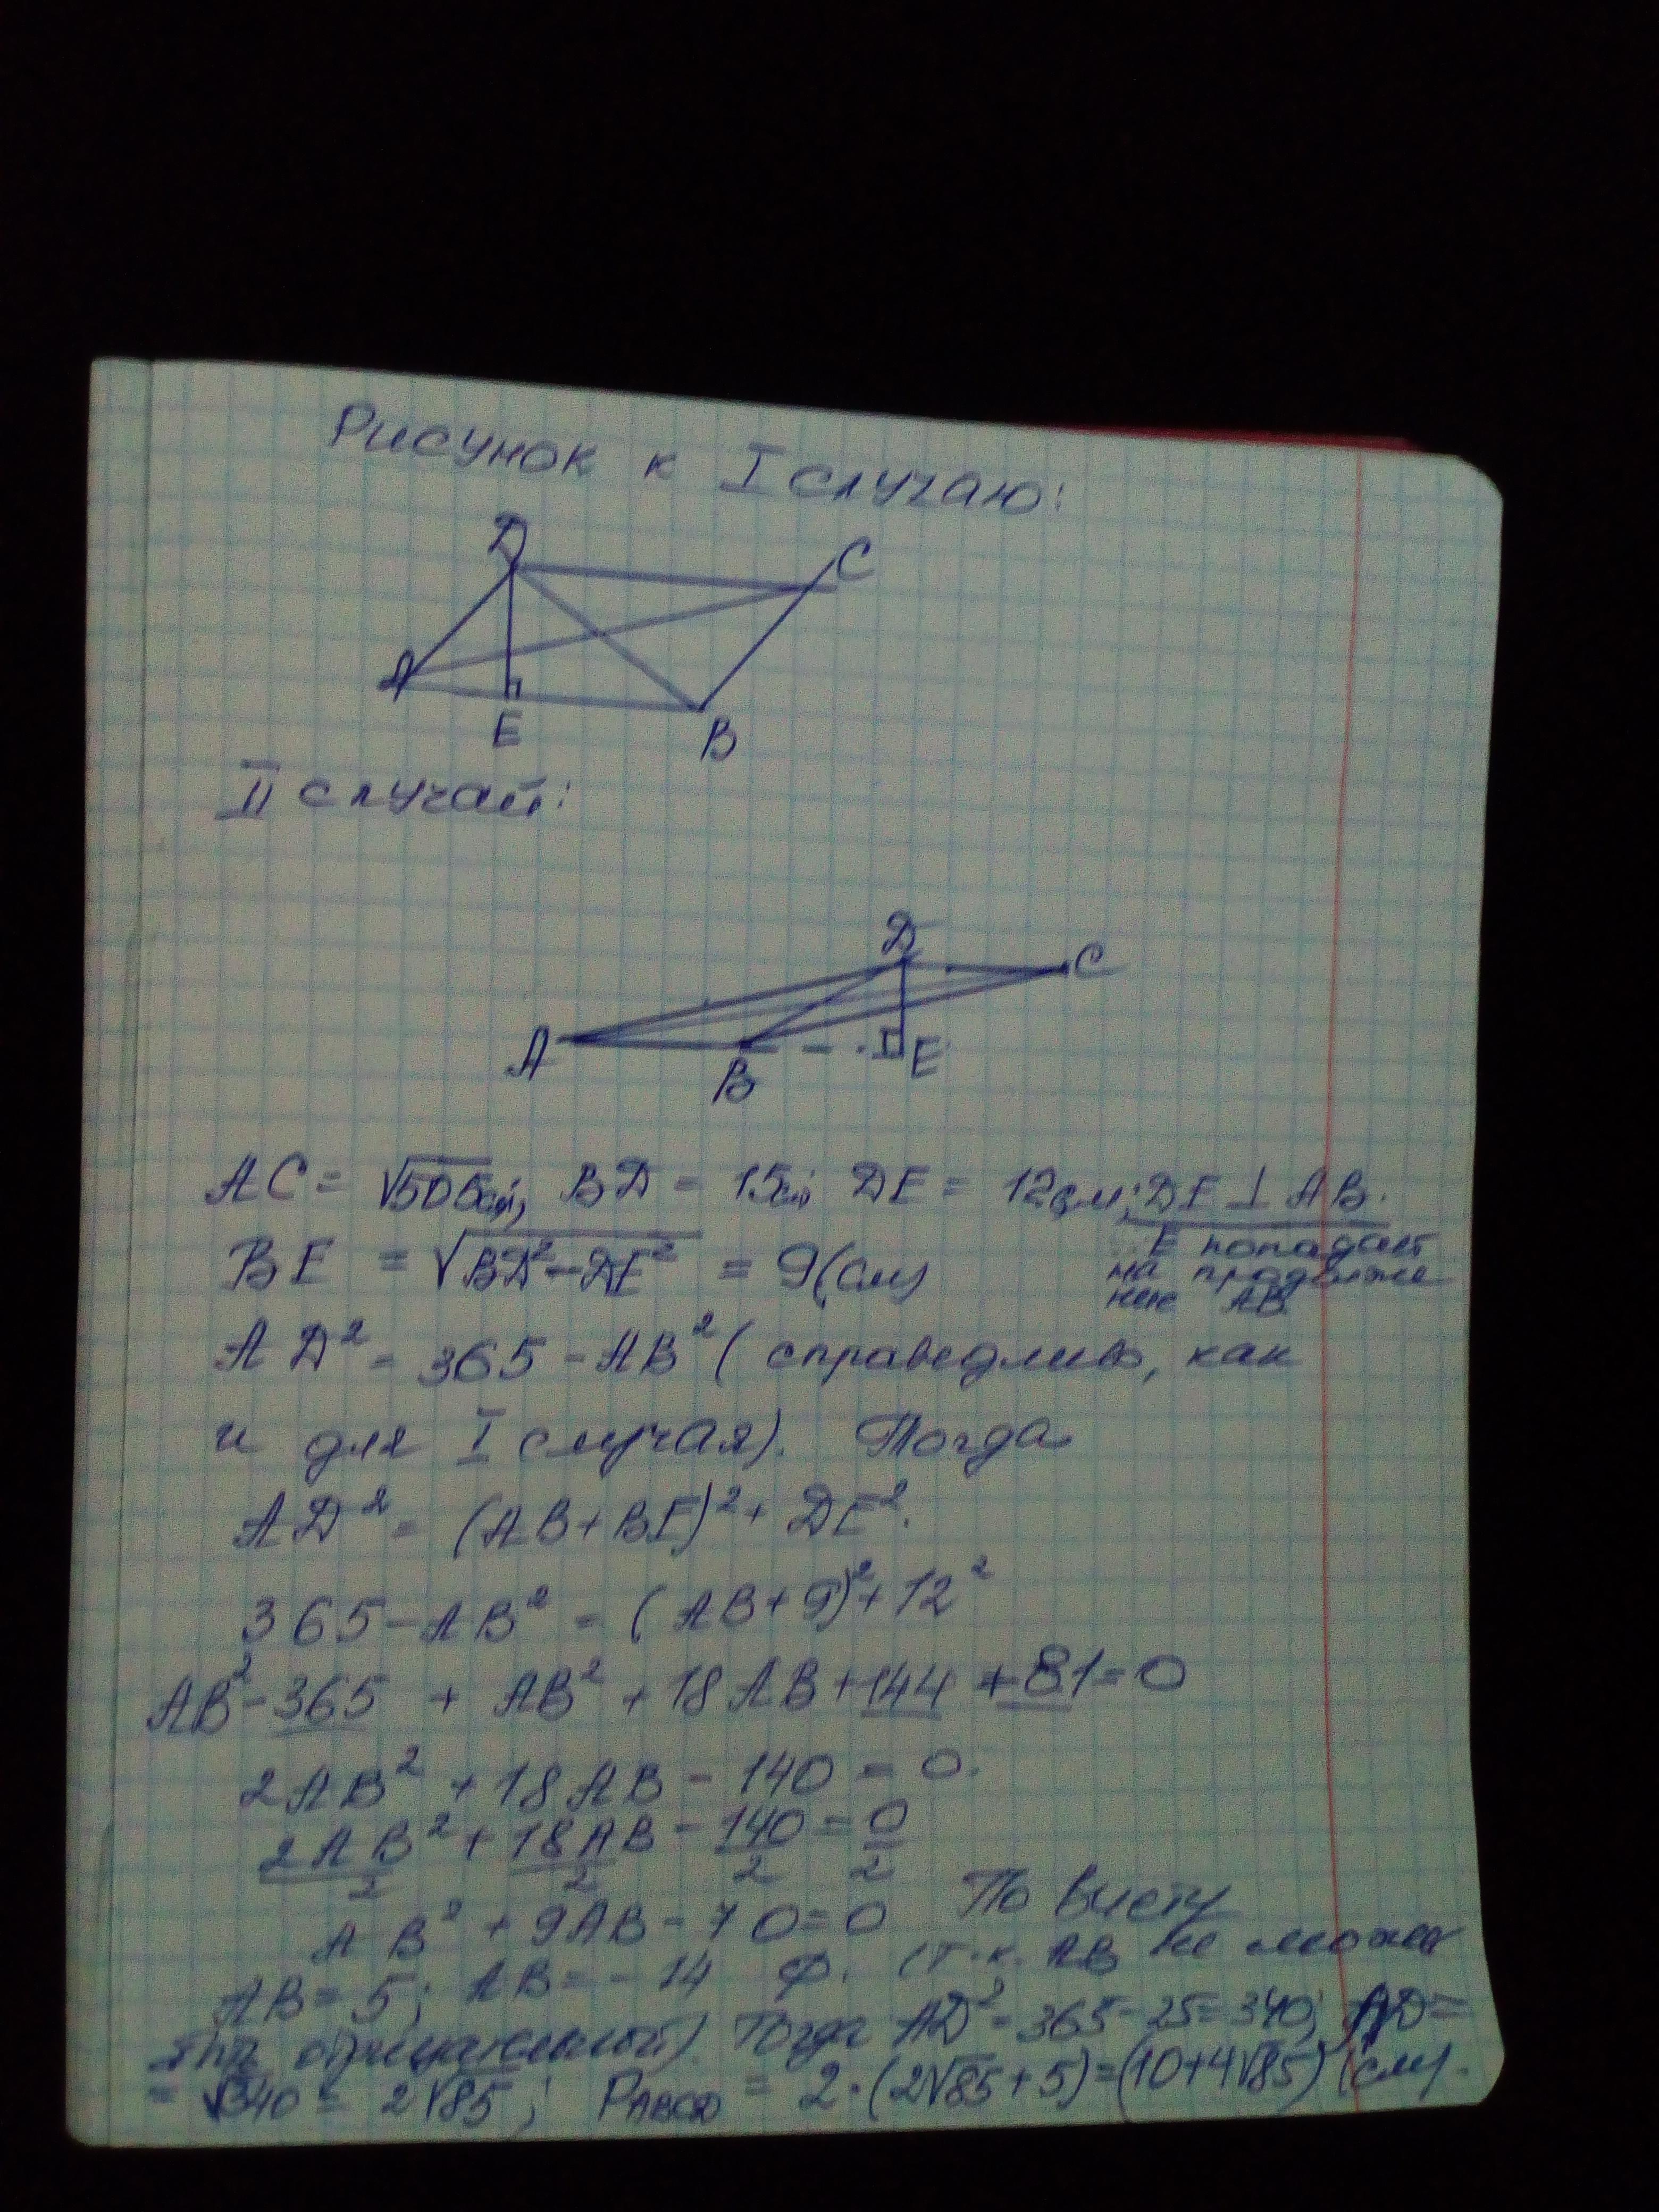 Рисунок к I случаю:
D
C
A
E
B
II случай:
D
C
A
B
E
AC = √505 см; BD = 15 см; DE = 12 см; DE ⊥ AB.
E попадает
на продолже
ние AB.
BE = √BD² - DE² = 9 (см)
AD² = 365 - AB² (справедливо, как
и для I случая). Тогда
AD² = (AB + BE)² + DE².
365 - AB² = (AB + 9)² + 12²
AB² - 365 + AB² + 18AB + 144 + 81 = 0
2AB² + 18AB - 140 = 0.
2AB²/2 + 18AB/2 - 140/2 = 0/2
AB² + 9AB - 70 = 0 По Виету
AB = 5; AB = -14 Ф. (т.к. AB не может
быть отрицательной). Тогда AD² = 365 - 25 = 340; AD =
= √340 = 2√85; PABCD = 2·(2√85 + 5) = (10 + 4√85) (см).